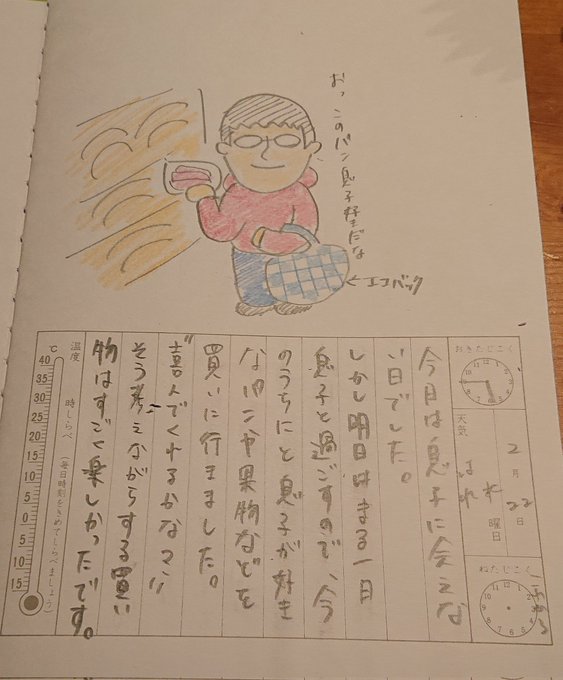 おっこのパン息子好きだな
←エコバック
おきたじこく
2月22日
曜日
天気
はれ
ねたじこく
今日は息子に会えな
い日でした。
しかし明日はまる一日
息子と過ごすので、今
のうちにと息子が好き
なパンや果物などを
買いに行きました。
喜んでくれるかな
そう考えながらする買い
物はすごく楽しかったです。
温度 時しらべ (毎日時刻をきめてしらべましょう)
℃
40
35
30
25
20
15
10
5
0
5
10
15